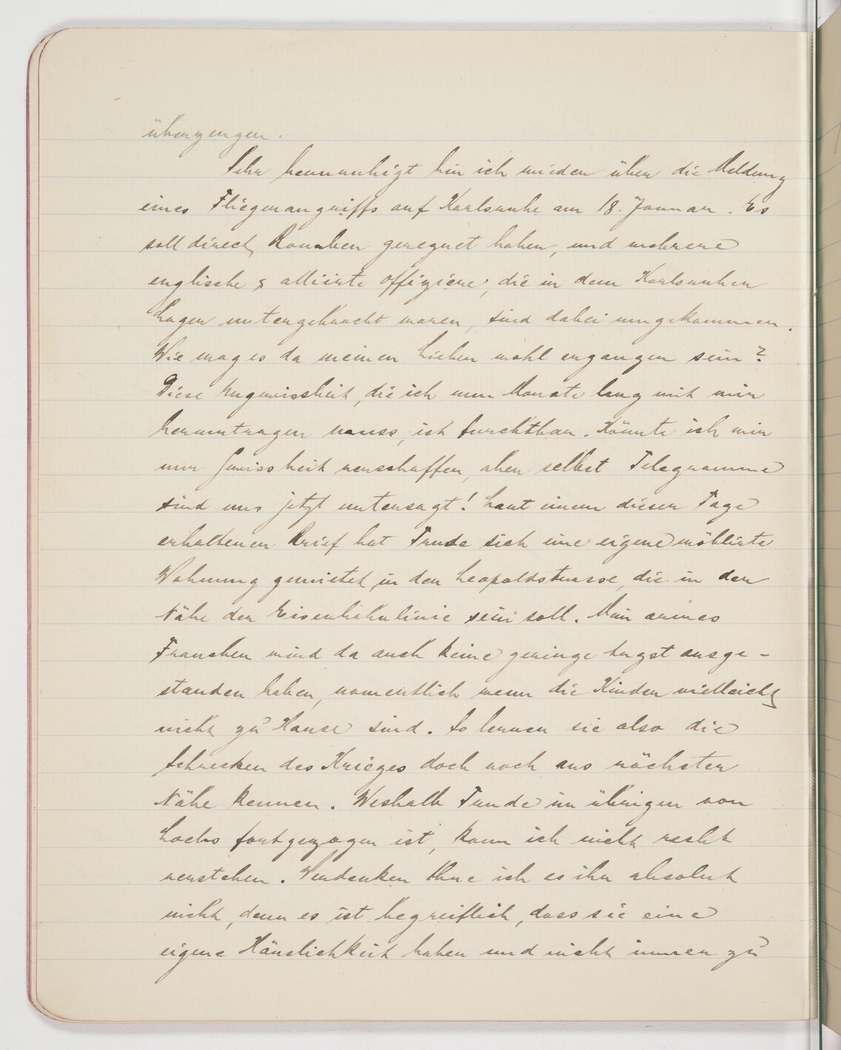 überzeugen.
Sehr beunruhigt bin ich wieder über die Meldung
eines Fliegerangriffs auf Karlsruhe am 18. Januar. Es
soll direct Bomben geregnet haben, und mehrere
englische & alliirte Offiziere, die in dem Karlsruher
Lager untergebracht waren, sind dabei umgekommen.
Wie mag es da meinen Lieben wohl ergangen sein?
Diese Ungewissheit, die ich nun Monate lang mit mir
herumtragen muss, ist furchtbar. Könnte ich mir
nur Gewissheit verschaffen, aber selbst Telegramme
sind uns jetzt untersagt! Laut einem dieser Tage
erhaltenen Brief hat Trude sich eine eigene möblirte
Wohnung gemietet, in der Leopoldstrasse, die in der
Nähe der Eisenbahnlinie sein soll. Mein armes
Frauchen wird da auch keine geringe Angst ausge-
standen haben, namentlich wenn die Kinder vielleicht
nicht zu Hause sind. So lernen sie also die
Schrecken des Krieges doch noch aus nächster
Nähe kennen. Weshalb Trude im übrigen von
Lochs fortgezogen ist, kann ich nicht recht
verstehen. Verdenken thue ich es ihr absolut
nicht, denn es ist begreiflich, dass sie eine
eigene Häuslichkeit haben und nicht immer zu